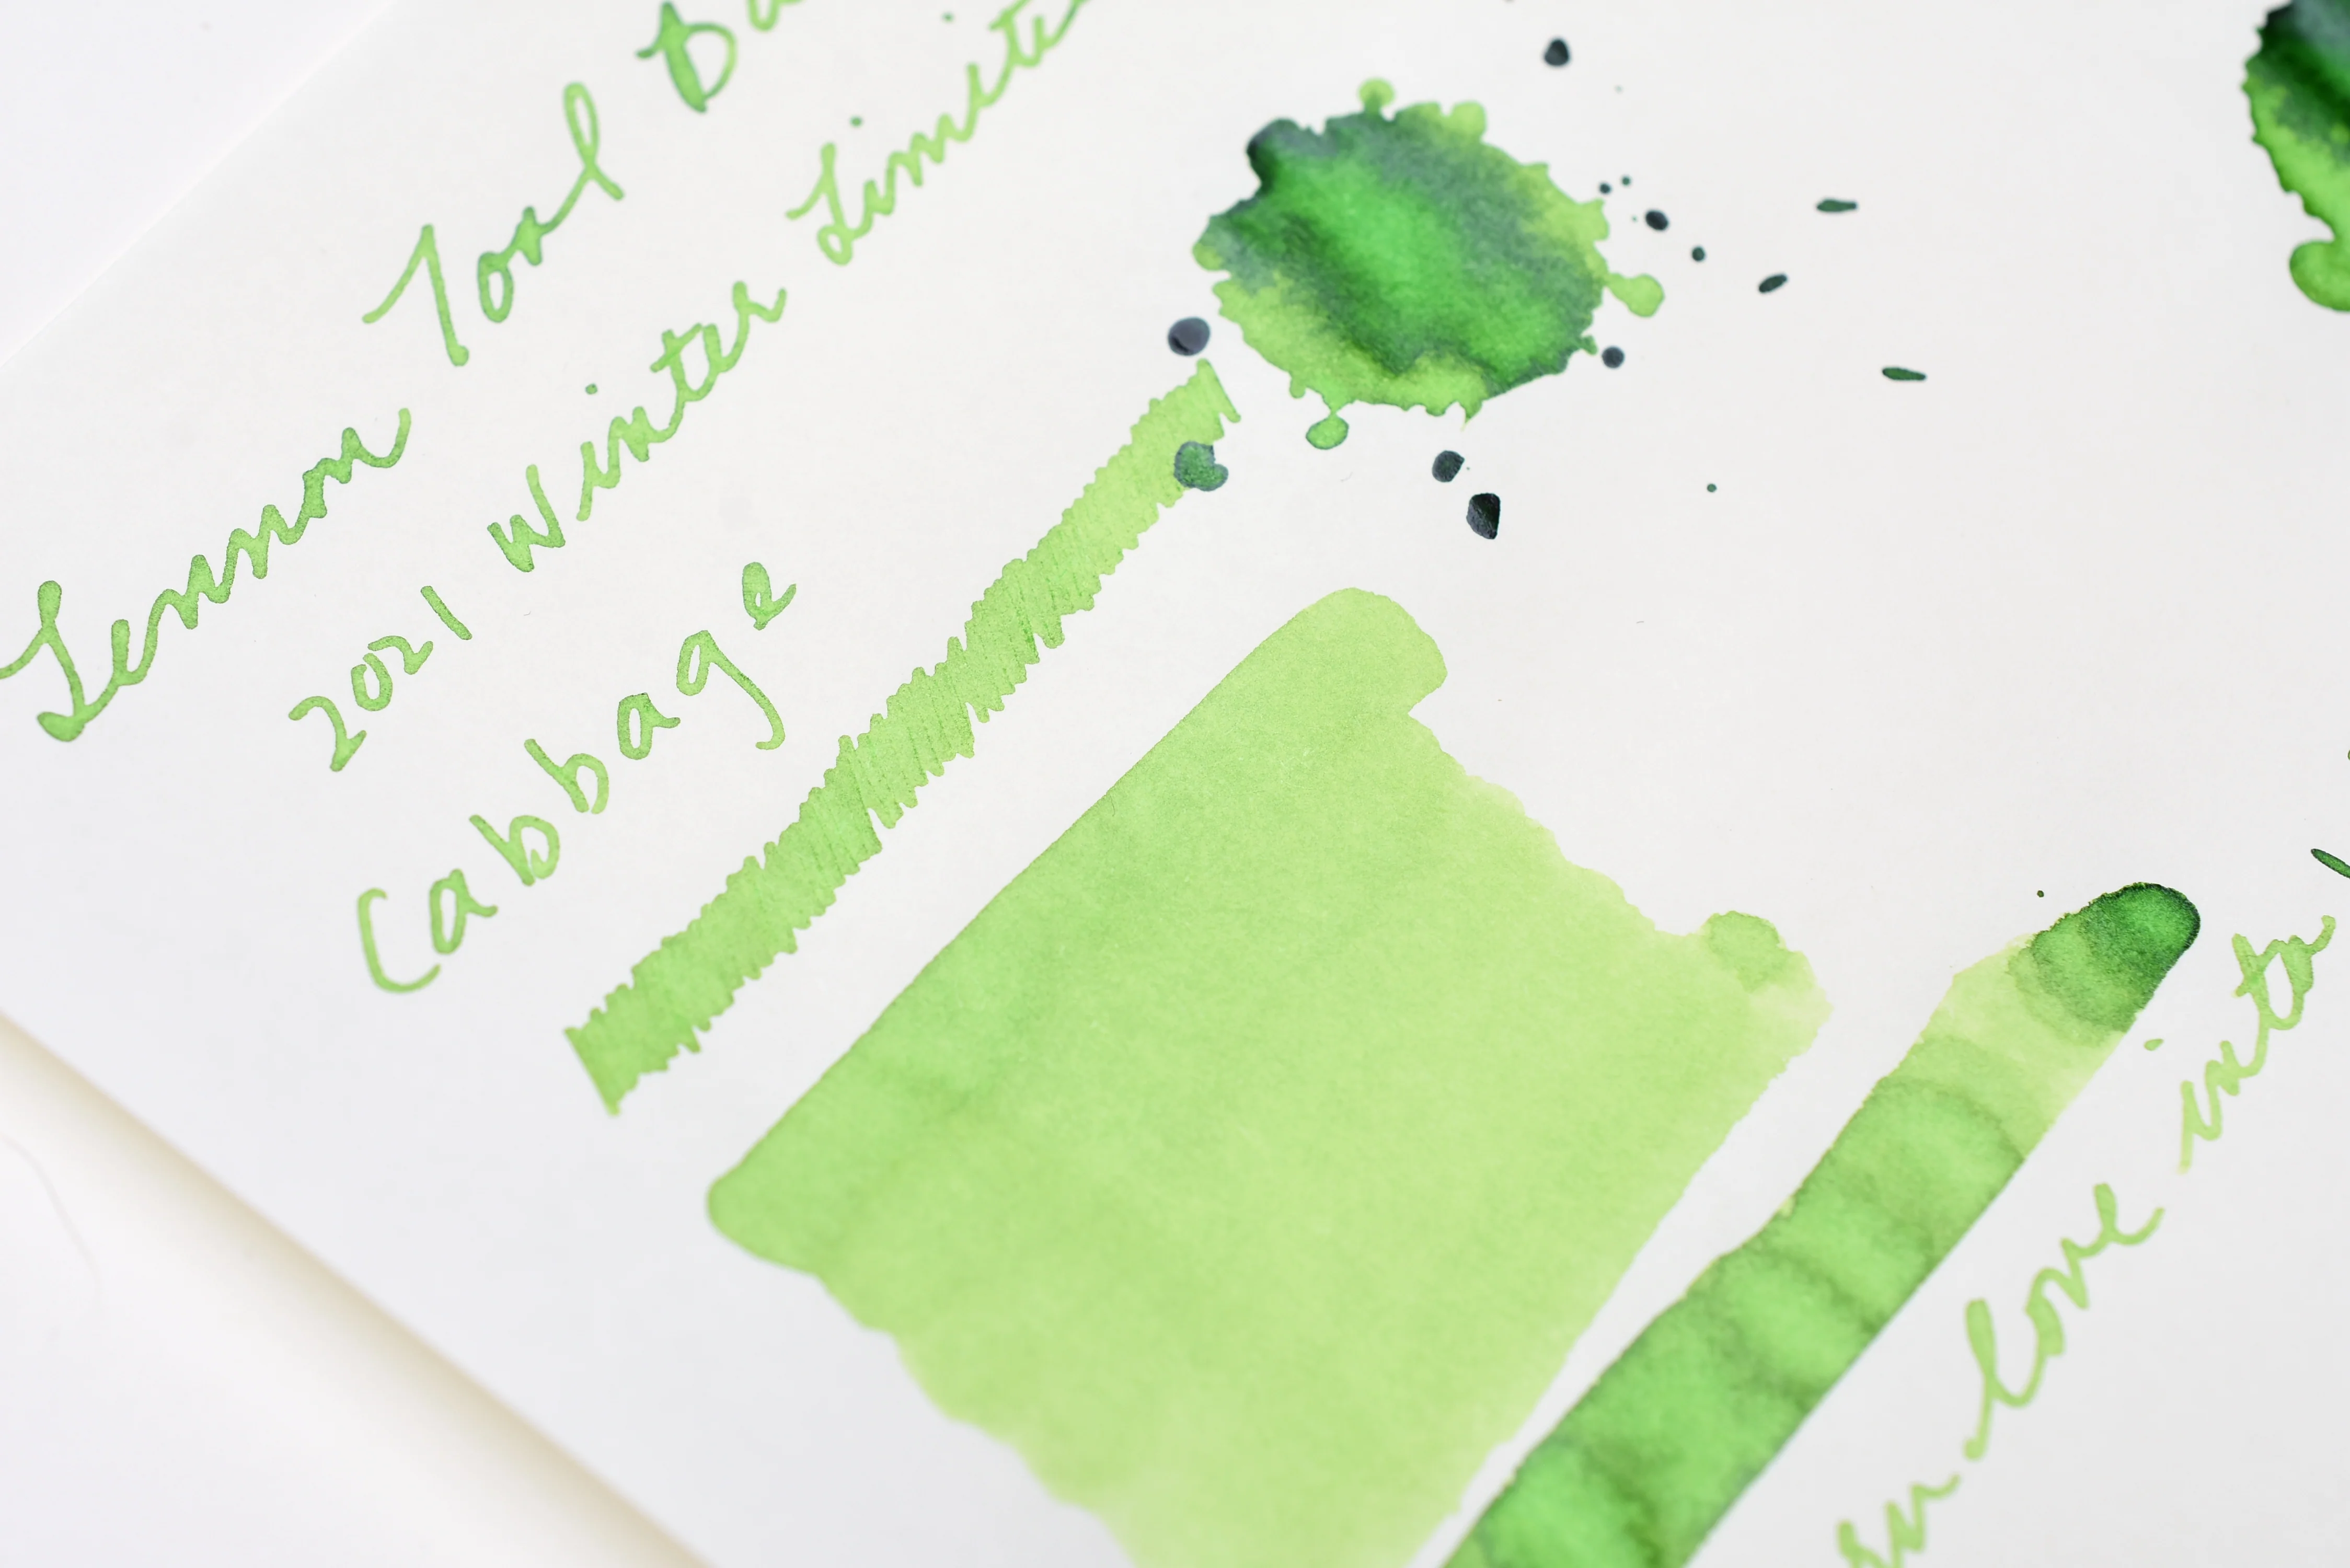 Lennon Tool Ba
2021 Winter Limite
Cabbage
love into